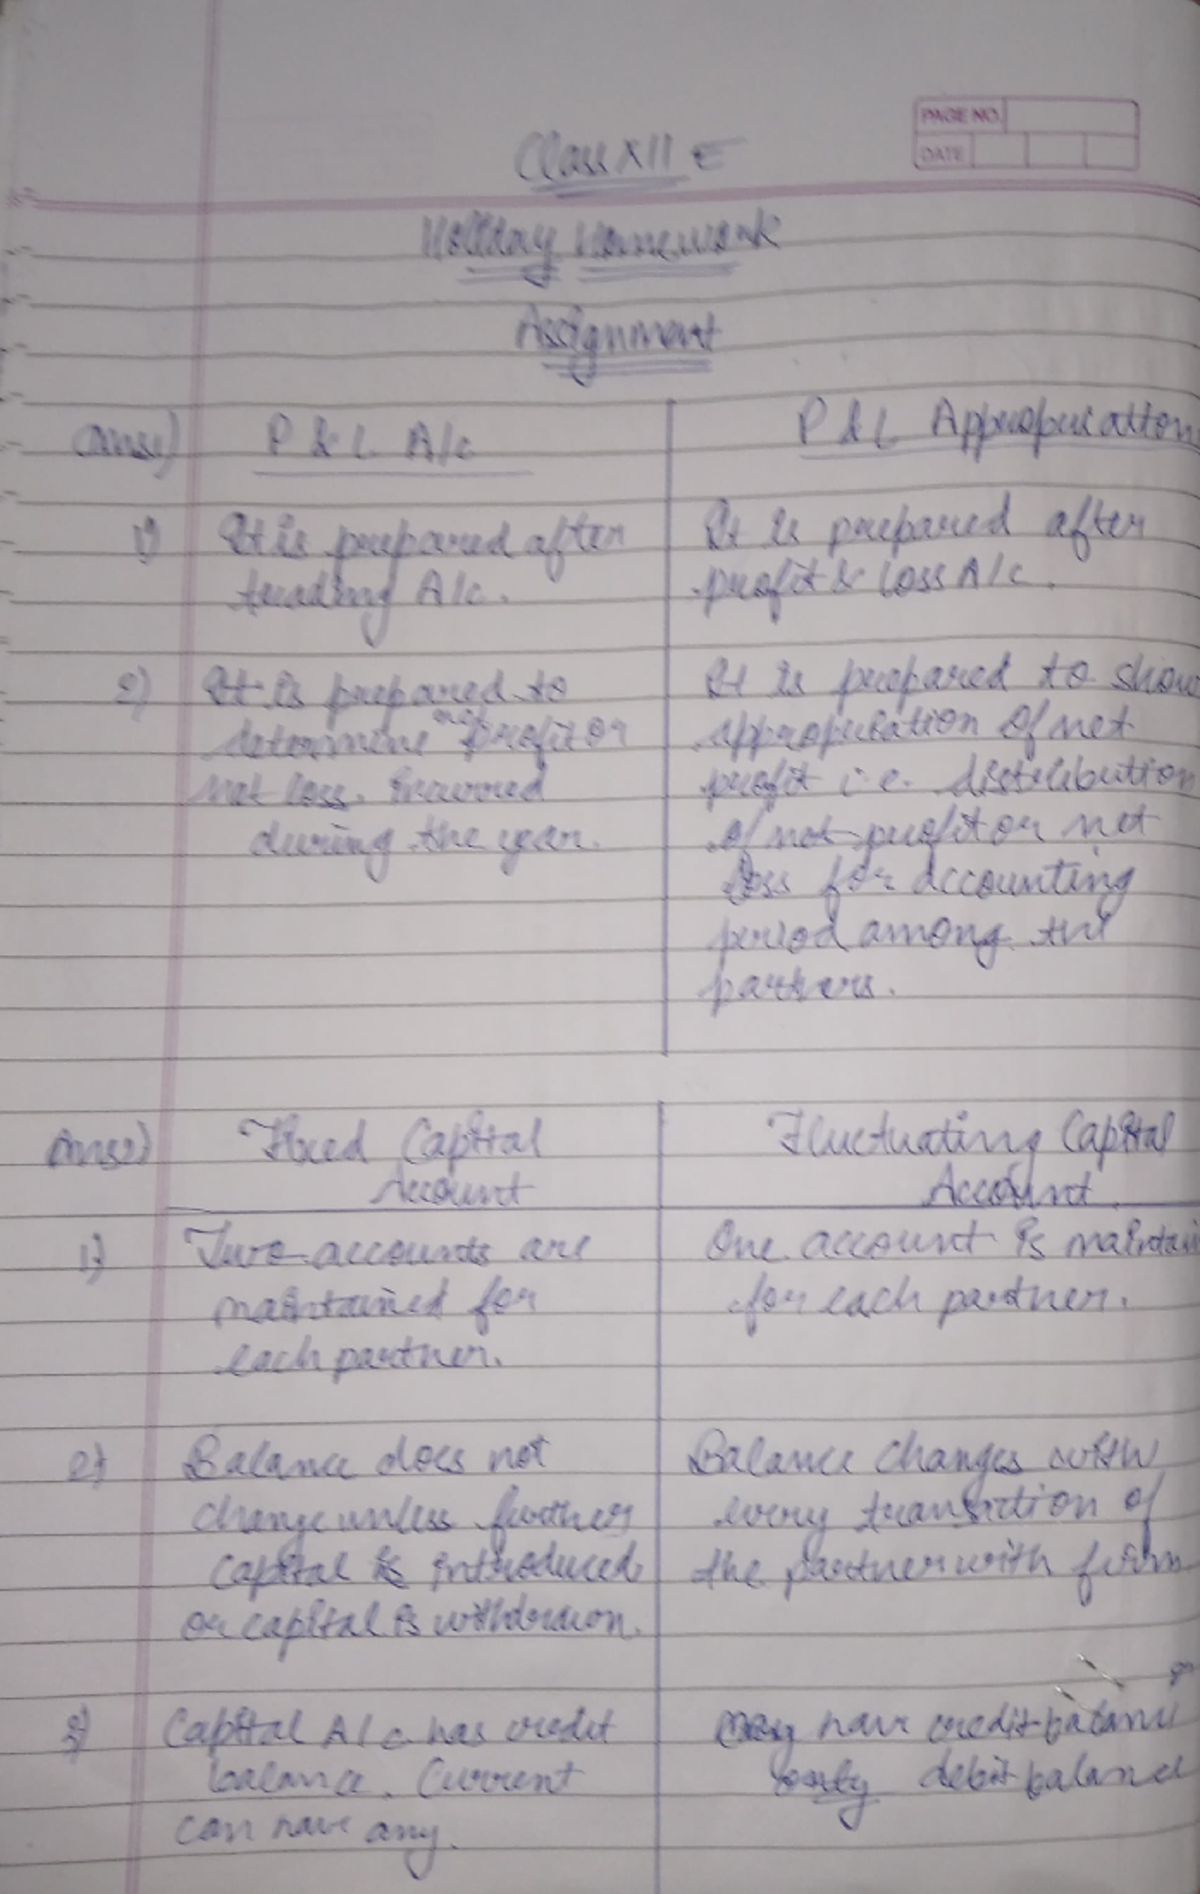 PAGE NO.
DATE
Class XII E
Holiday Homework
Assignment
Ans1) P & L A/c
1) It is prepared after
trading A/c.
2) It is prepared to
determine net profit or
net loss. Incurred
during the year.
P & L Appropriation
It is prepared after
profit & loss A/c.
It is prepared to show
appropriation of net
profit i.e. distribution
of net profit or net
loss for accounting
period among the
partners.
Ans2) Fixed Capital
Account
1) Two accounts are
maintained for
each partner.
2) Balance does not
change unless further
capital is introduced
or capital is withdrawn.
3) Capital A/c has credit
balance. Current
can have any.
Fluctuating Capital
Account
One account is maintai
for each partner.
Balance changes with
every transaction of
the partner with firm
may have credit balance or
only debit balance